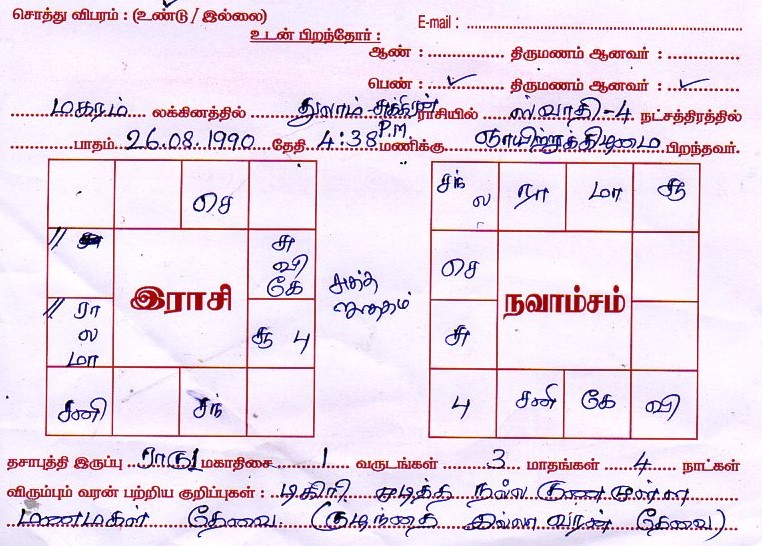 சொத்து விபரம் : (உண்டு / இல்லை) E-mail :
உடன் பிறந்தோர் :
ஆண் : திருமணம் ஆனவர் :
பெண் : திருமணம் ஆனவர் :
மகரம் லக்கினத்தில் துலாம் ராசியில் ஸ்வாதி-4 நட்சத்திரத்தில்
பாதம் 26.08.1990 தேதி 4:38 P.M. மணிக்கு ஞாயிற்றுக்கிழமை பிறந்தவர்.
செ
சு
வி
கே
இராசி
ரா
ல
மா
சூ 4
சனி சந்
சுத்த
ஜாதகம்
சந்
ல
ரா மா சூ
செ
நவாம்சம்
சு
4 சனி கே வி
தசாபுத்தி இருப்பு ராகு மகாதிசை 1 வருடங்கள் 3 மாதங்கள் 4 நாட்கள்
விரும்பும் வரன் பற்றிய குறிப்புகள் : டிகிரி முடித்த நல்ல குணமுள்ள
மணமகள் தேவை (குழந்தை இல்லா வரன் தேவை)